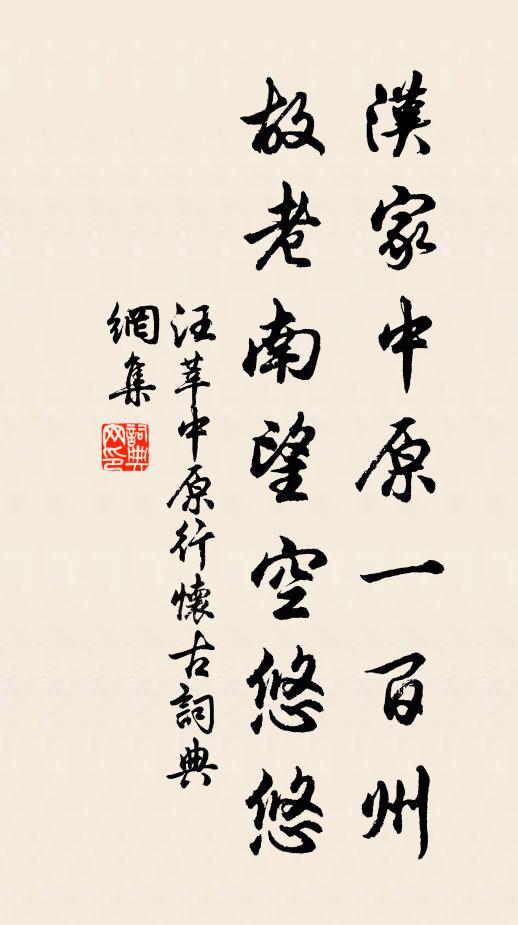 漢家中原一百州
故老南望空悠悠
汪莘中原行懷古詞典
網集
詞典
网印